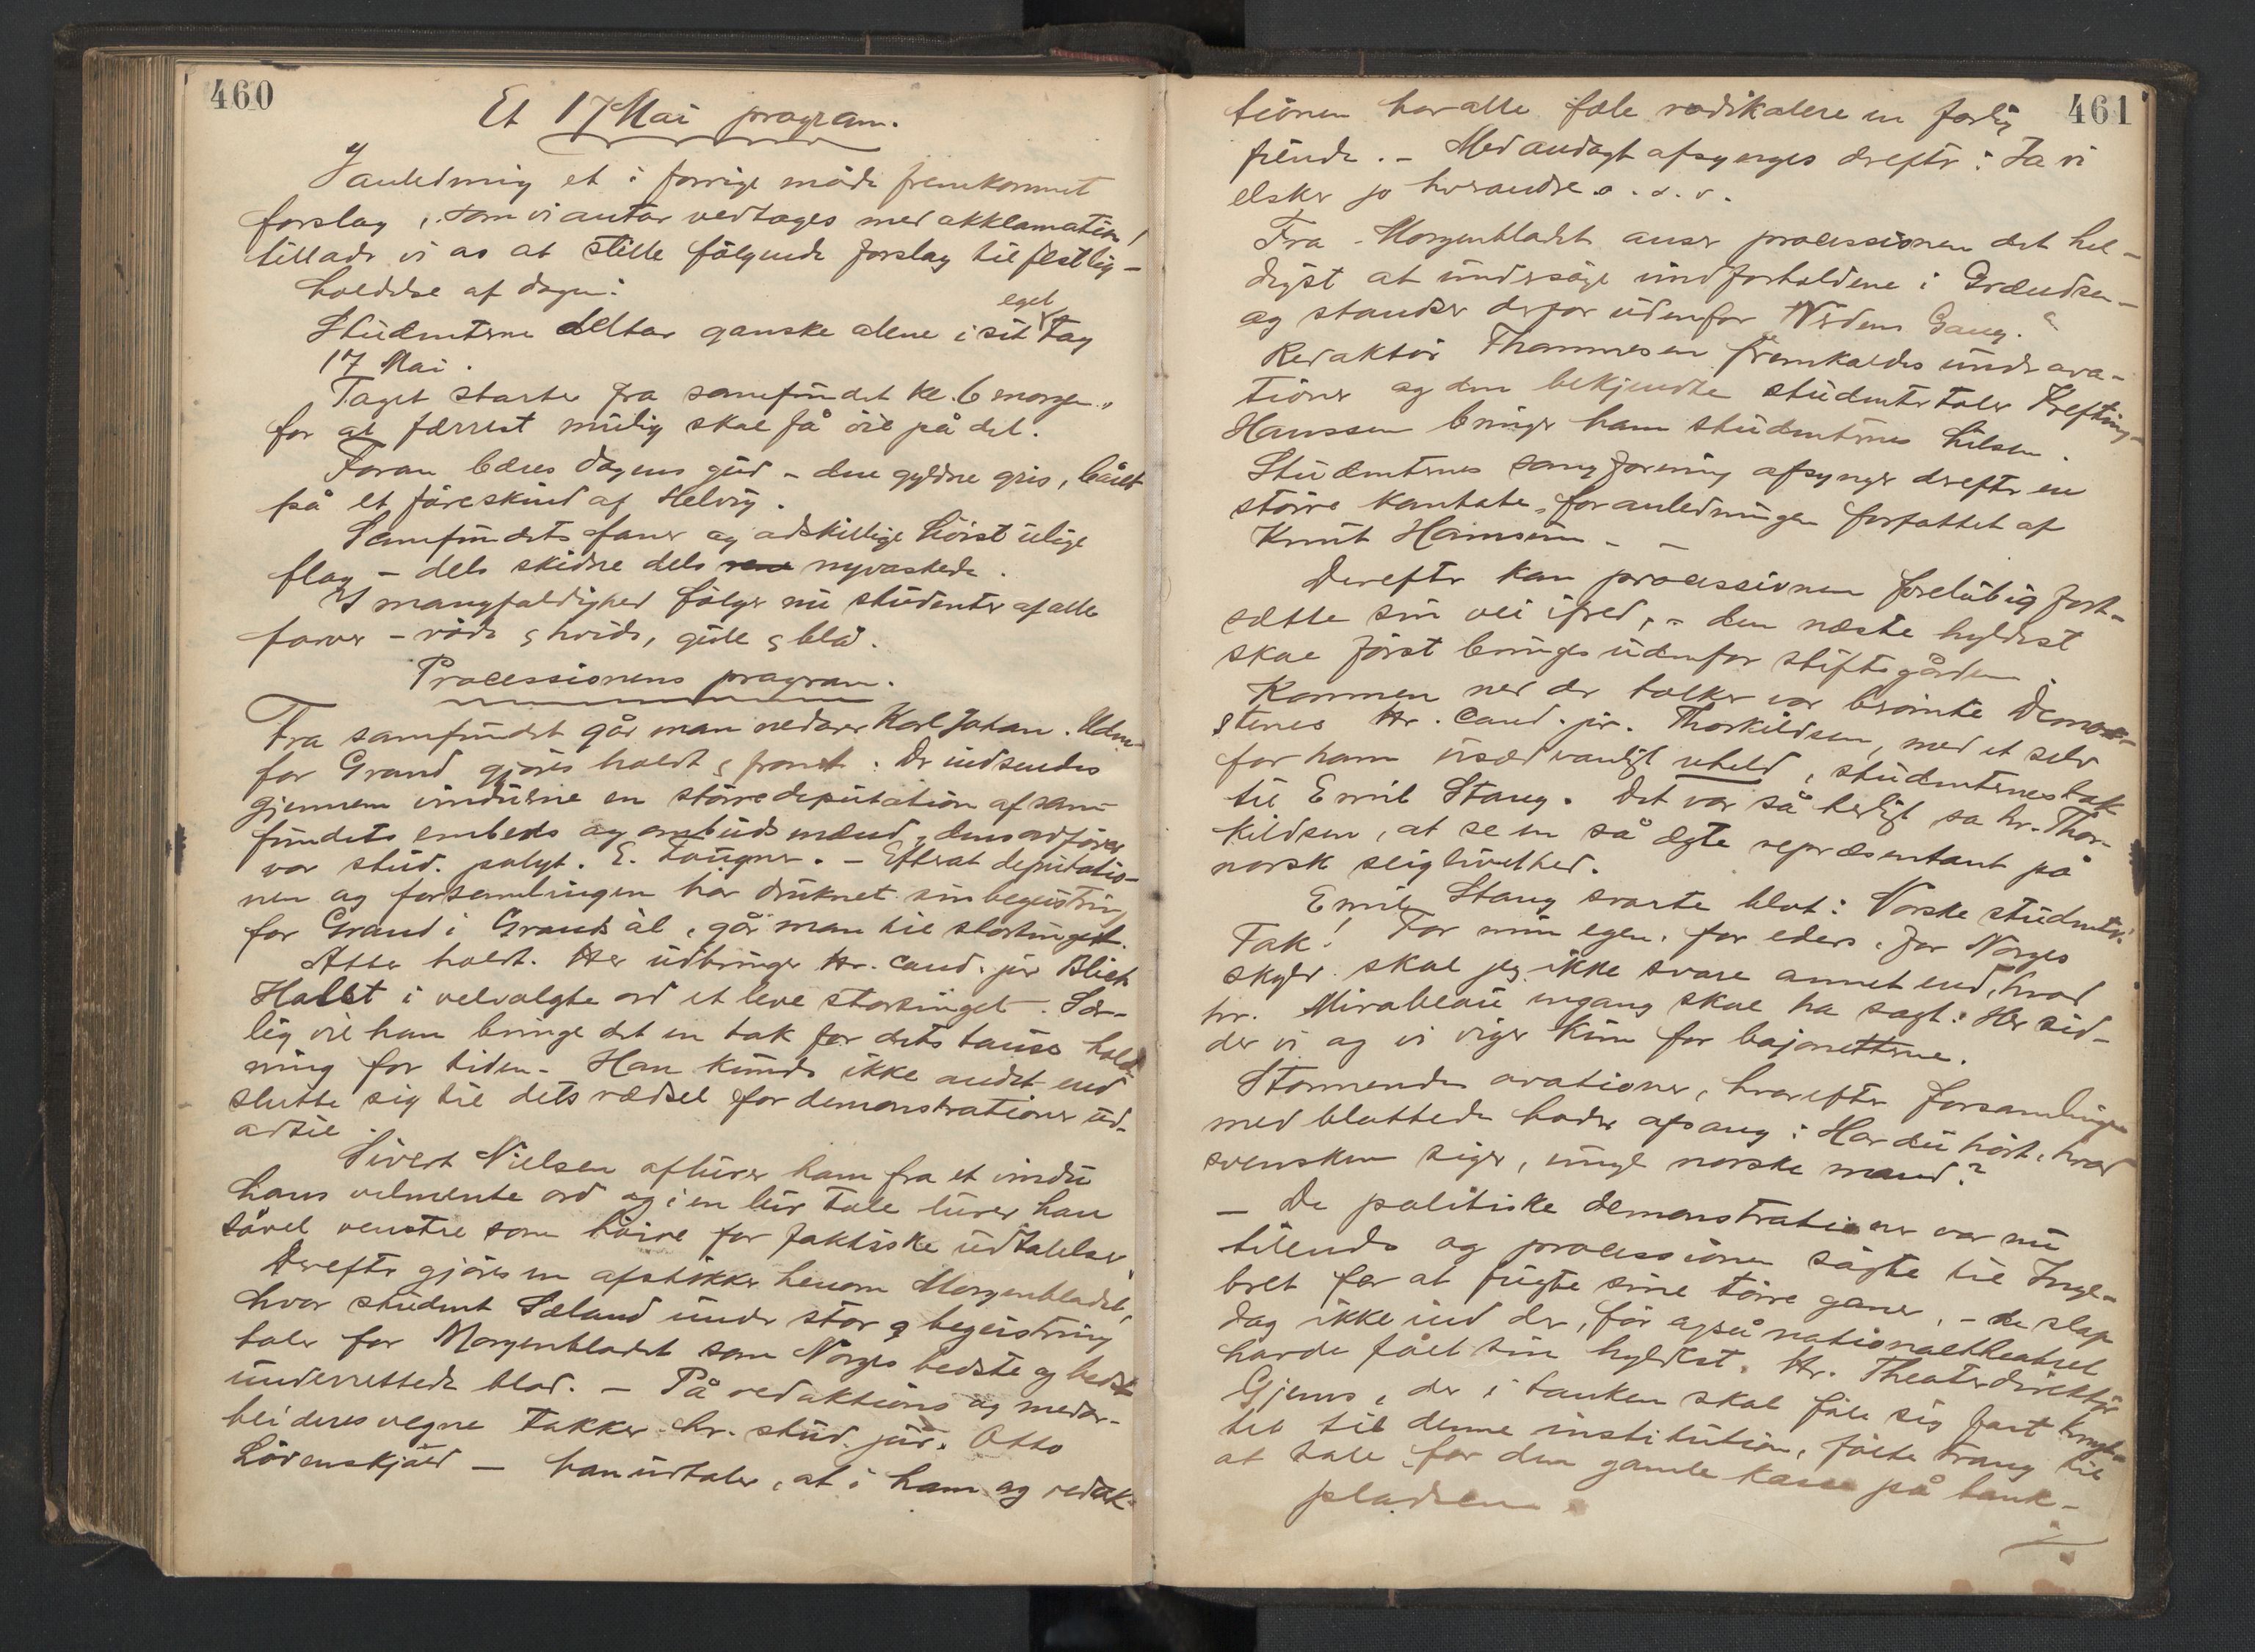 460
Et 17 Mai program.
I anledning et i forrige möde fremkommet
forslag, som vi antar vedtages med akklamation,
tillader vi os at stille fölgende forslag til festlig-
holdelse af dagen:
Studenterne deltar ganske alene i sit eget tog
17 Mai.
Toget starter fra samfundet kl. 6 morgen,
for at færrest mulig skal få öie på det.
Foran bæres dagens gud - den gyldne gris, båret
på et fåreskind af Helvig.
Samfundets faner og adskillige höist ulige
flag - dels skidne dels nyvaskede.
I mangfoldighed fölger nu studenter af alle
farver - röde & hvide, gule & blå.
Processionens program.
Fra samfundet går man nedover Karl Johan. Uden-
for Grand gjöres holdt & front. Der indsendes
gjennem vinduerne en större deputation af sam-
fundets embeds og ombudsmænd, dens ordförer
var stud. polyt. E. Fougner. - Efterat deputatio-
nen og forsamlingen har druknet sin begeistring
for Grand i Grands öl, går man til stortinget.
Atter holdt. Her udbringer Hr. cand. jur Blich
Holst i velvalgte ord et leve stortinget. Sær-
lig vil han bringe det en tak for dets tause hold-
ning for tiden. - Han kunde ikke andet end
slutte sig til dets rædsel for demonstrationer ud-
adtil.
Sivert Nielsen aflurer ham fra et vindu
hans velmente ord og i en lur tale lurer han
såvel venstre som höire for faktiske udtalelser.
Derefter gjöres en afstikker henom Morgenbladet,
hvor student Sæland under stor begeistring
taler for Morgenbladet som Norges bedste og bedst
underrettede blad. - På redaktions og medar-
beideres vegne takker hr. stud. jur. Otto
Lövenskjold - han udtaler, at i ham og redak-
461
tionen har alle fæle radikalere en farlig
fiende. - Med andagt afsynges derefter: Ja vi
elsker jo hverandre o. s. v.
Fra Morgenbladet anser processionen det hel-
digst at undersöge vindforholdene i Grændsen -
og standser derfor udenfor "Verdens Gang."
Redaktör Thommesen fremkaldes under ova-
tioner og den bekjendte studentertaler Krefting-
Hanssen bringer ham studenternes hilsen.
Studenternes sangforening afsynger derefter en
större kantate, for anledningen forfattet af
Knut Hamsun - -
Derefter kan processionen forelöbig fort-
sætte sin vei ifred, - den næste hyldest
skal först bringes udenfor stiftsgården.
Kommen ned der tolker vor berömte Demos-
stenes Hr. cand. jur. Thorkildsen, med et selv
for ham usædvanligt uheld, studenternes tak
til Emil Stang. Det var så herligt sa hr. Thor-
kildsen, at se en så ægte repræsentant på
norsk seiglivethed.
Emil Stang svarte blot: Norske studenter!
Tak! For min egen, for eders, for Norges
skyld skal jeg ikke svare annet end, hvad
hr. Mirabeau engang skal ha sagt: Her sid-
der vi og vi viger kun for bajonetterne.
Stormende ovationer, hvorefter forsamlingen
med blottede hoder afsang: Har du hört, hvad
svensken siger, unge norske mand?
- De politiske demonstrationer var nu
tilende og processionen sögte til Inge-
bret for at fugte sine törre ganer, - de slap
dog ikke ind der, för også nationaltheatret
havde fået sin hyldest. Hr. Theaterdirektör
Gjems, der i tanken skal föle sig fast knyt-
tet til denne institution, fölte trang til
at tale for den gamle kasse på bank-
pladsen.